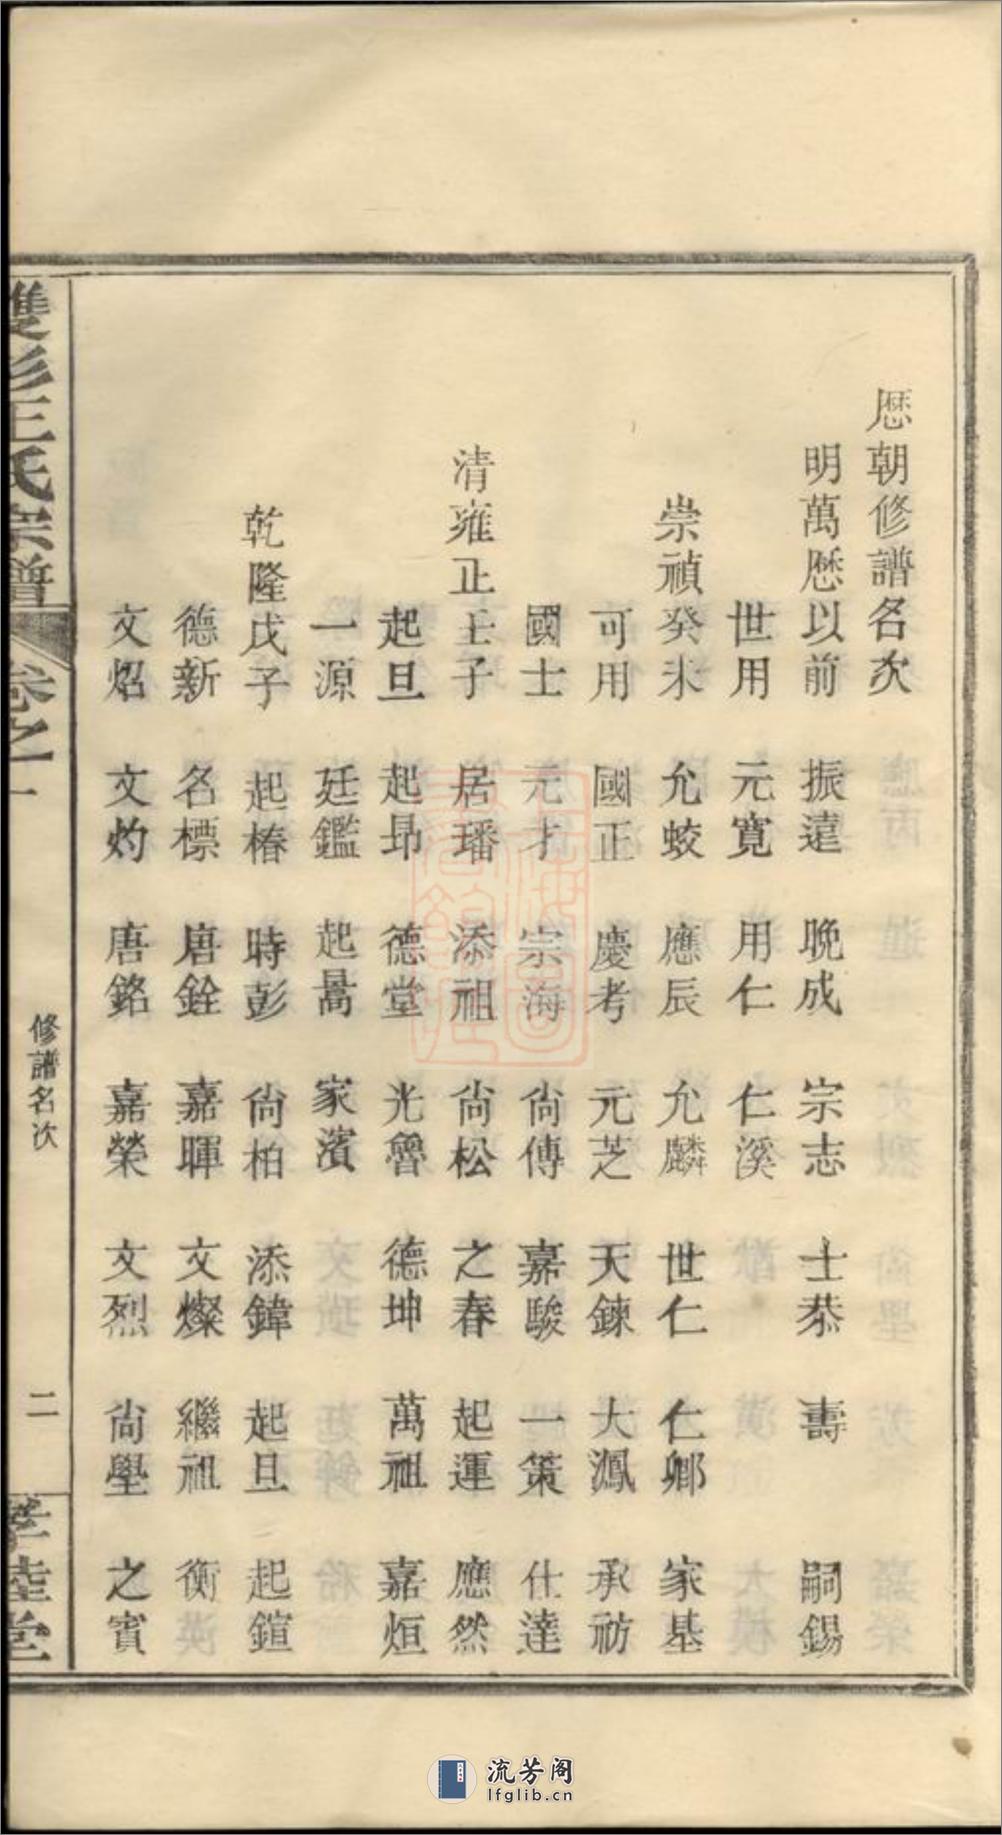 歷朝修譜名次
明萬歷以前 振遠 晚成 宗志 士恭 壽 嗣錫
世用 元寬 用仁 仁溪
崇禎癸未 允蛟 應辰 允麟 世仁 仁卿 家基
可用 國正 慶考 元芝 天鍊 大鳳 承祊
國士 元才 宗海 尙傳 嘉駿 一策 仕達
清雍正壬子 居璠 添祖 尙松 之春 起運 應然
起旦 起昻 德堂 光魯 德坤 萬祖 嘉烜
一源 廷鑑 起暠 家濱
乾隆戊子 起椿 時彭 尙柏 添鍏 起旦 起鍹
德新 名標 唐銓 嘉暉 文燦 繼祖 衡
文炤 文灼 唐銘 嘉榮 文烈 尙學 之賓
雙杉王氏宗譜 卷之一 修譜名次 二 孝睦堂
流芳阁
lfglib.cn